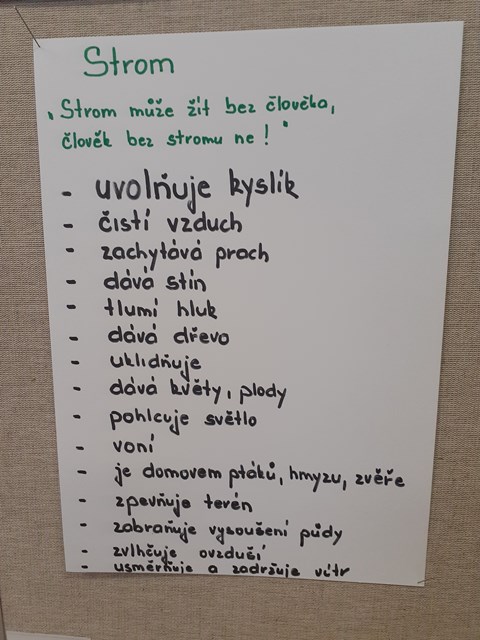 Strom
„Strom může žít bez člověka,
člověk bez stromu ne!"
- uvolňuje kyslík
- čistí vzduch
- zachytává prach
- dává stín
- tlumí hluk
- dává dřevo
- uklidňuje
- dává květy, plody
- pohlcuje světlo
- voní
- je domovem ptáků, hmyzu, zvěře
- zpevňuje terén
- zabraňuje vysoušení půdy
- zvlhčuje ovzduší
- usměrňuje a zadržuje vítr